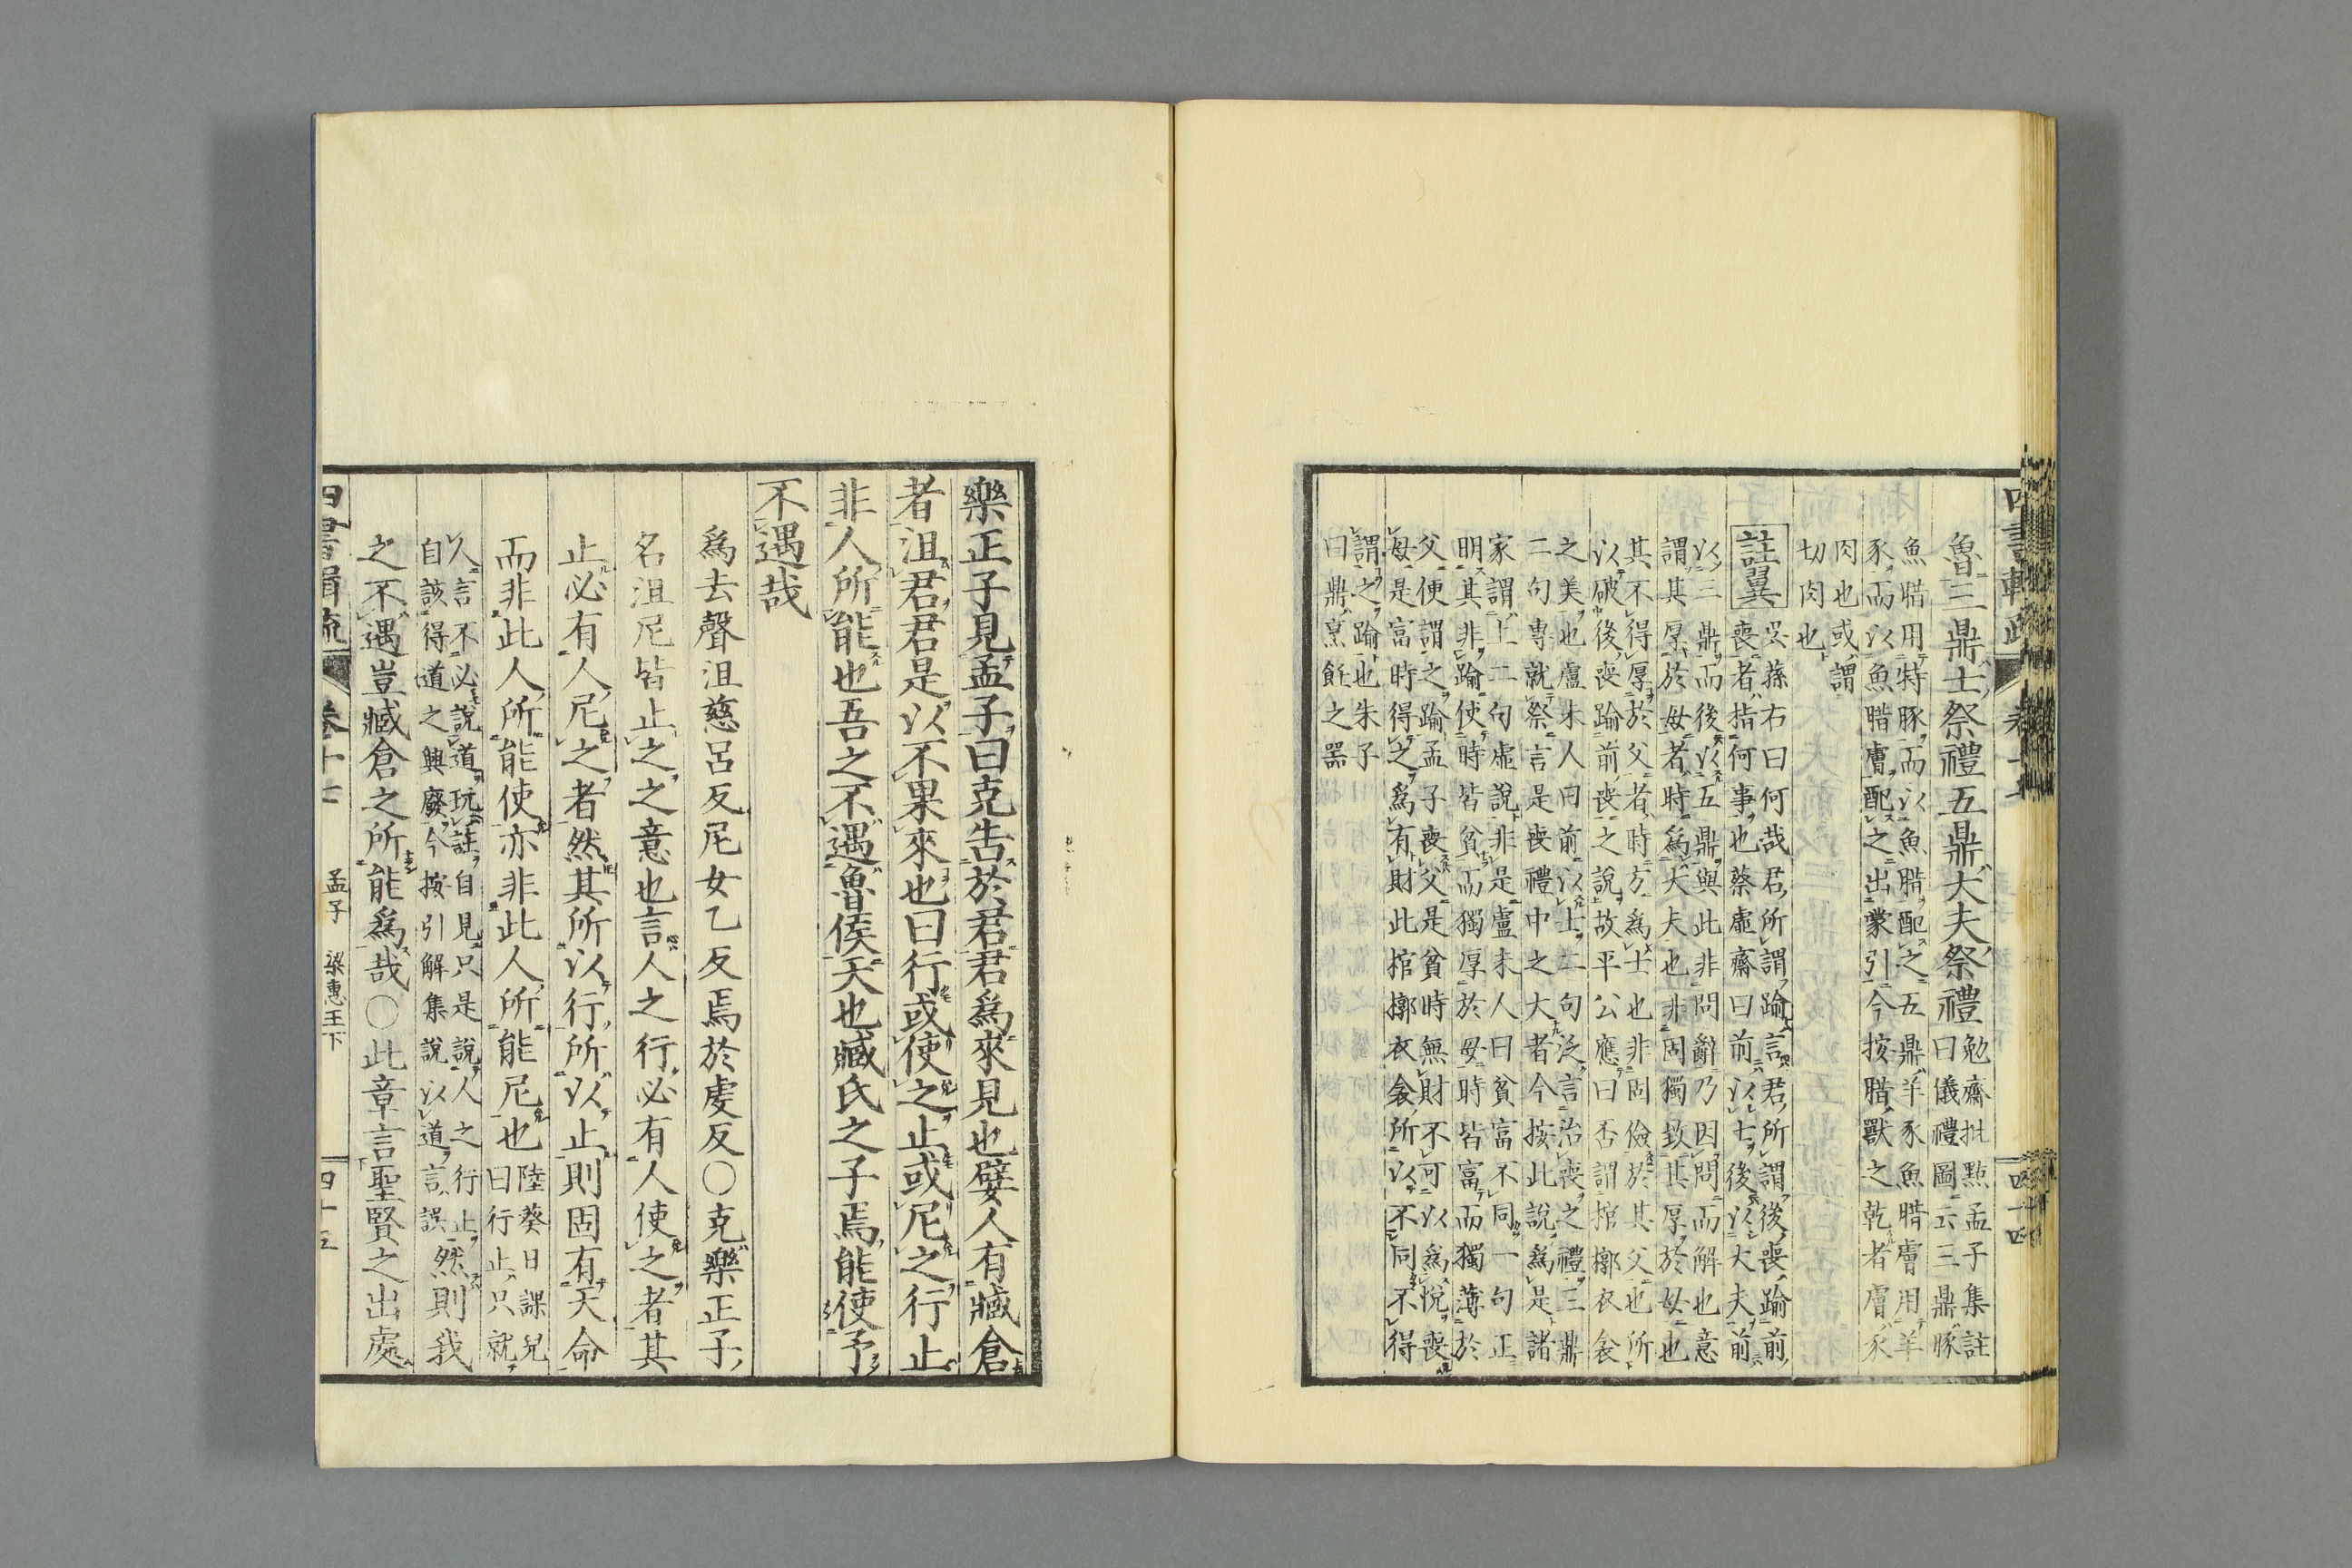 魯三鼎士祭禮五鼎大夫祭禮勉齋批點孟子集註
曰儀禮圖云三鼎豚
魚腊用特豚而以魚腊配之五鼎羊豕魚腊膚用羊
豕而以魚腊膚配之出蒙引今按腊獸之乾者膚豕
肉也或謂
切肉也
註翼
吴蓀右曰何哉君所謂踰言君所謂後喪踰前
喪者指何事也蔡虛齋曰前以士後以大夫前
以三鼎而後以五鼎與此非問辭乃因問而解也意
謂其厚於母者時爲大夫也非固獨致其厚於母也
其不得厚於父者時方爲士也非固儉於其父也所
以破後喪踰前喪之說故平公應曰否謂棺槨衣衾
之美也盧未人曰前以士二句泛言治喪之禮三鼎
二句專就祭言是喪禮中之大者今按此說爲是諸
家謂上二句虛說非是盧未人曰貧富不同一句正
明其非踰使時皆貧而獨厚於母時皆富而獨薄於
父便謂之踰孟子喪父是貧時無財不可以爲悅喪
母是富時得之爲有財此棺槨衣衾所以不同不得
謂之踰也朱子
曰鼎烹飪之器
四十四
樂正子見孟子曰克告於君君爲來見也嬖人有臧倉
者沮君君是以不果來也曰行或使之止或尼之行止
非人所能也吾之不遇魯侯天也臧氏之子焉能使予
不遇哉
爲去聲沮慈呂反尼女乙反焉於虔反○克樂正子
名沮尼皆止之之意也言人之行必有人使之者其
止必有人尼之者然其所以行所以止則固有天命
而非此人所能使亦非此人所能尼也陸葵日課兒
曰行止只就
人言不必說道玩註自見只是說人之行止
自該得道之興廢今按引解集說以道言誤然則我
之不遇豈臧倉之所能爲哉○此章言聖賢之出處
卷十七
孟子 梁惠王下
四十五